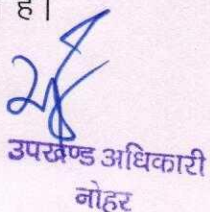 है।
उपखण्ड अधिकारी
नोहर